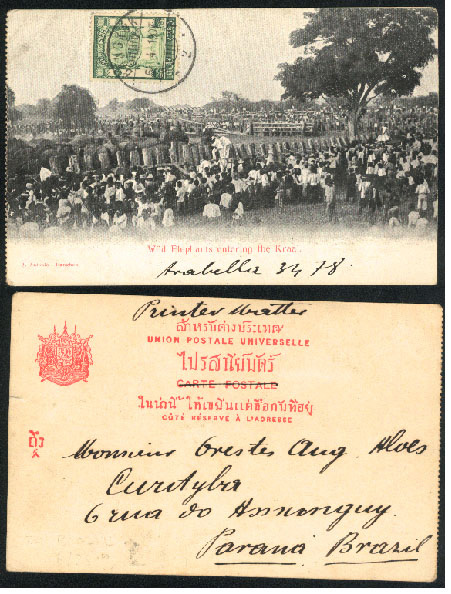 Wild Elephants entering the Kraal.
Arabella 3478
Printer Matter
สำหรับต่างประเทศ
UNION POSTALE UNIVERSELLE
ไปรสนียบัตร์
CARTE POSTALE
ในน่านี้ให้เขียนแต่ชื่อกับที่อยู่
CÔTÉ RÉSERVÉ À L'ADRESSE
ถึง
Monsieur Orestes Aug Alves
Curityba
6 rua do Assunguy
Paraná Brazil